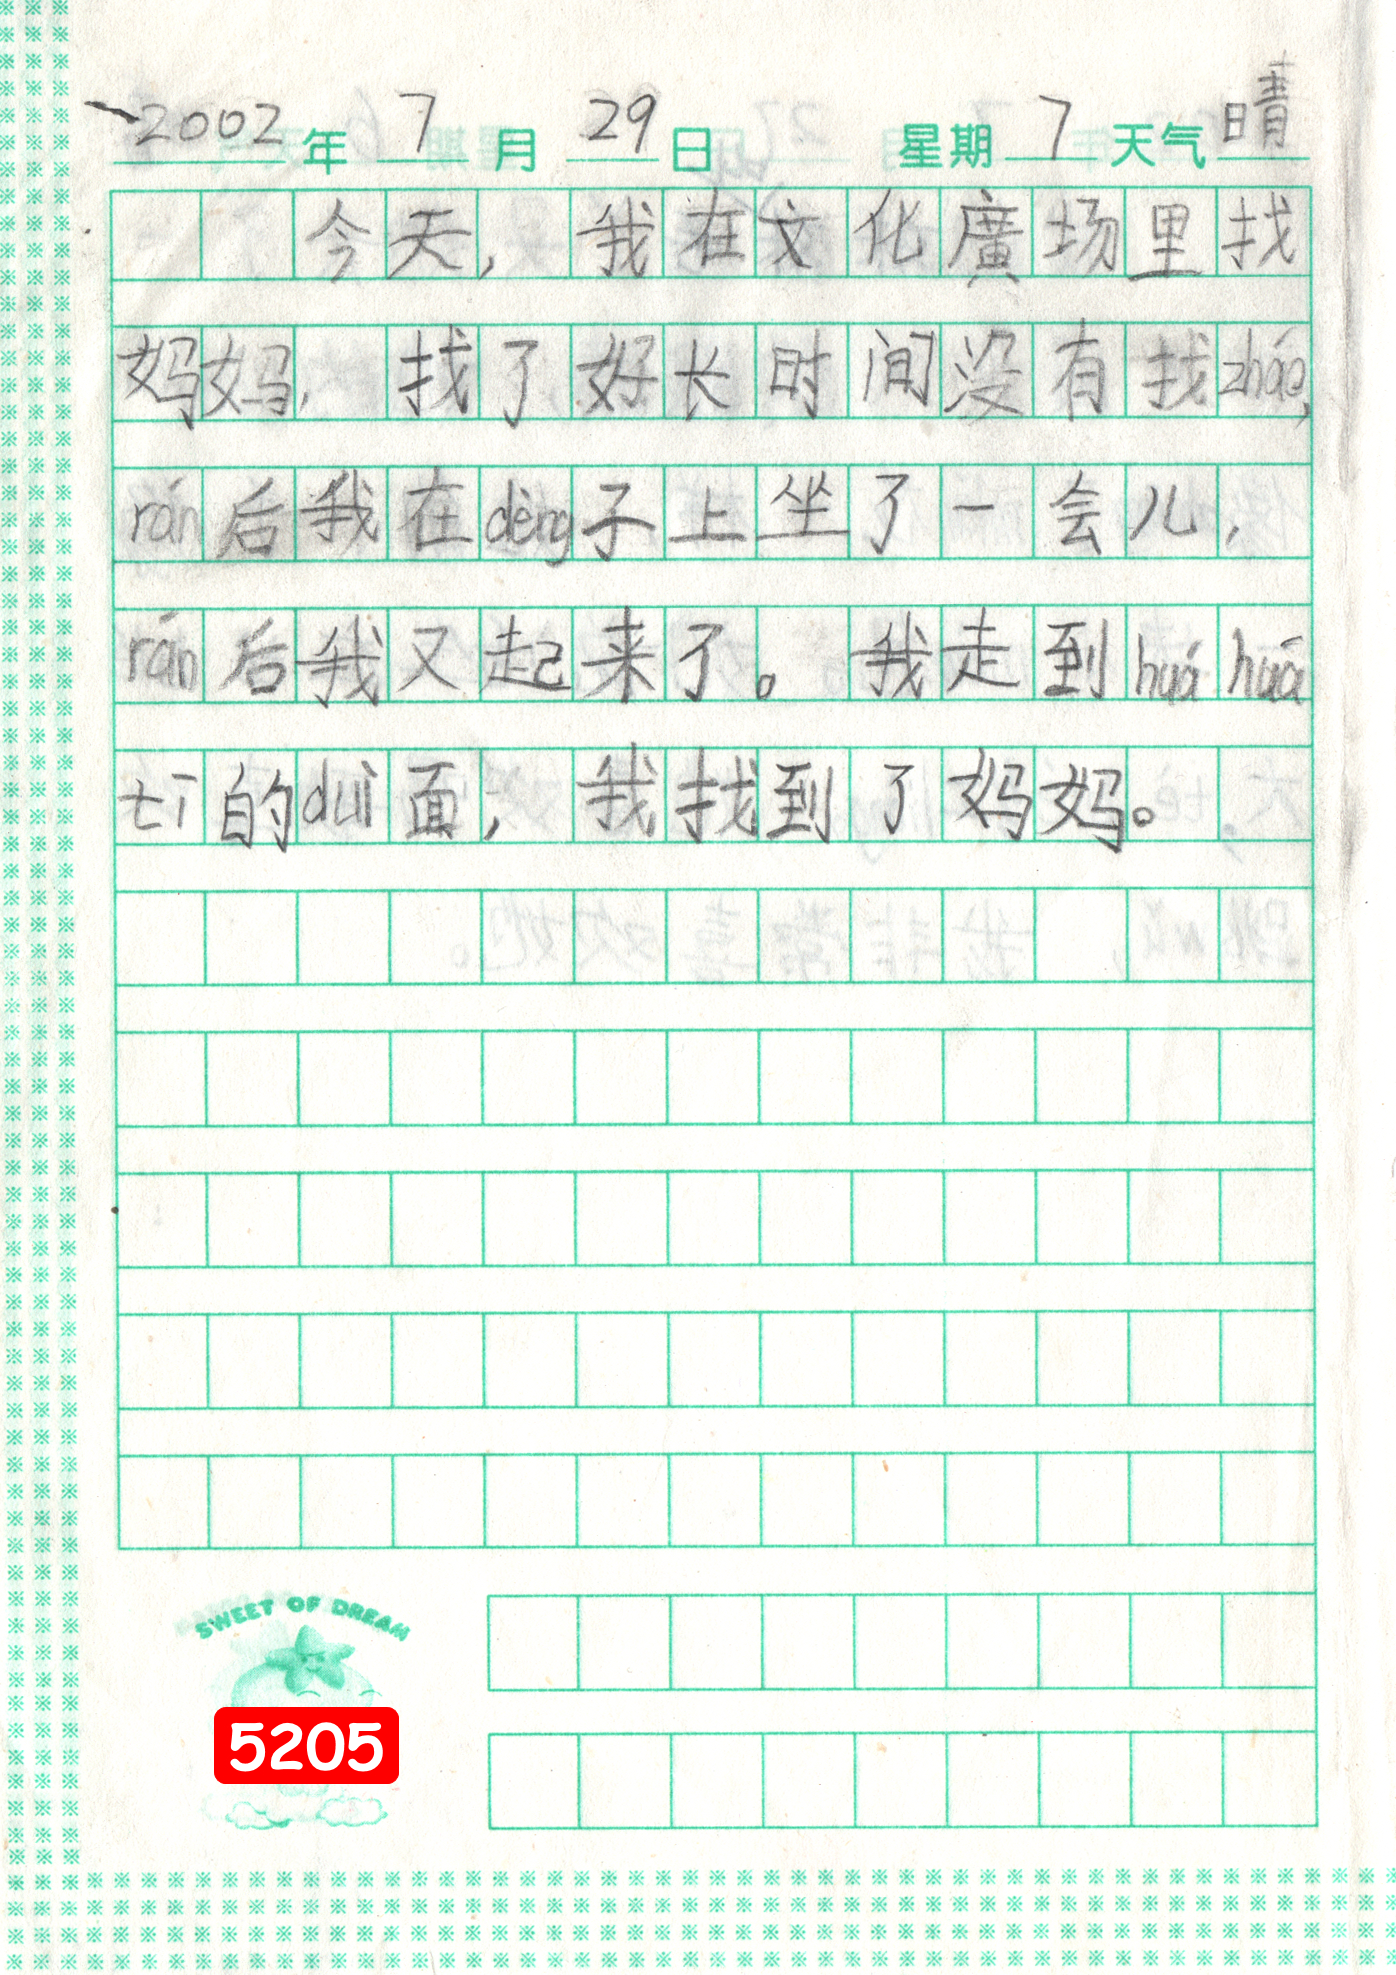 2002年7月29日 星期7天气晴
今天，我在文化廣场里找
妈妈，找了好长时间没有找zháo，
rán后我在dèng子上坐了一会儿，
rán后我又起来了。我走到huá huá
tī的duì面，我找到了妈妈。
SWEET OF DREAM
5205